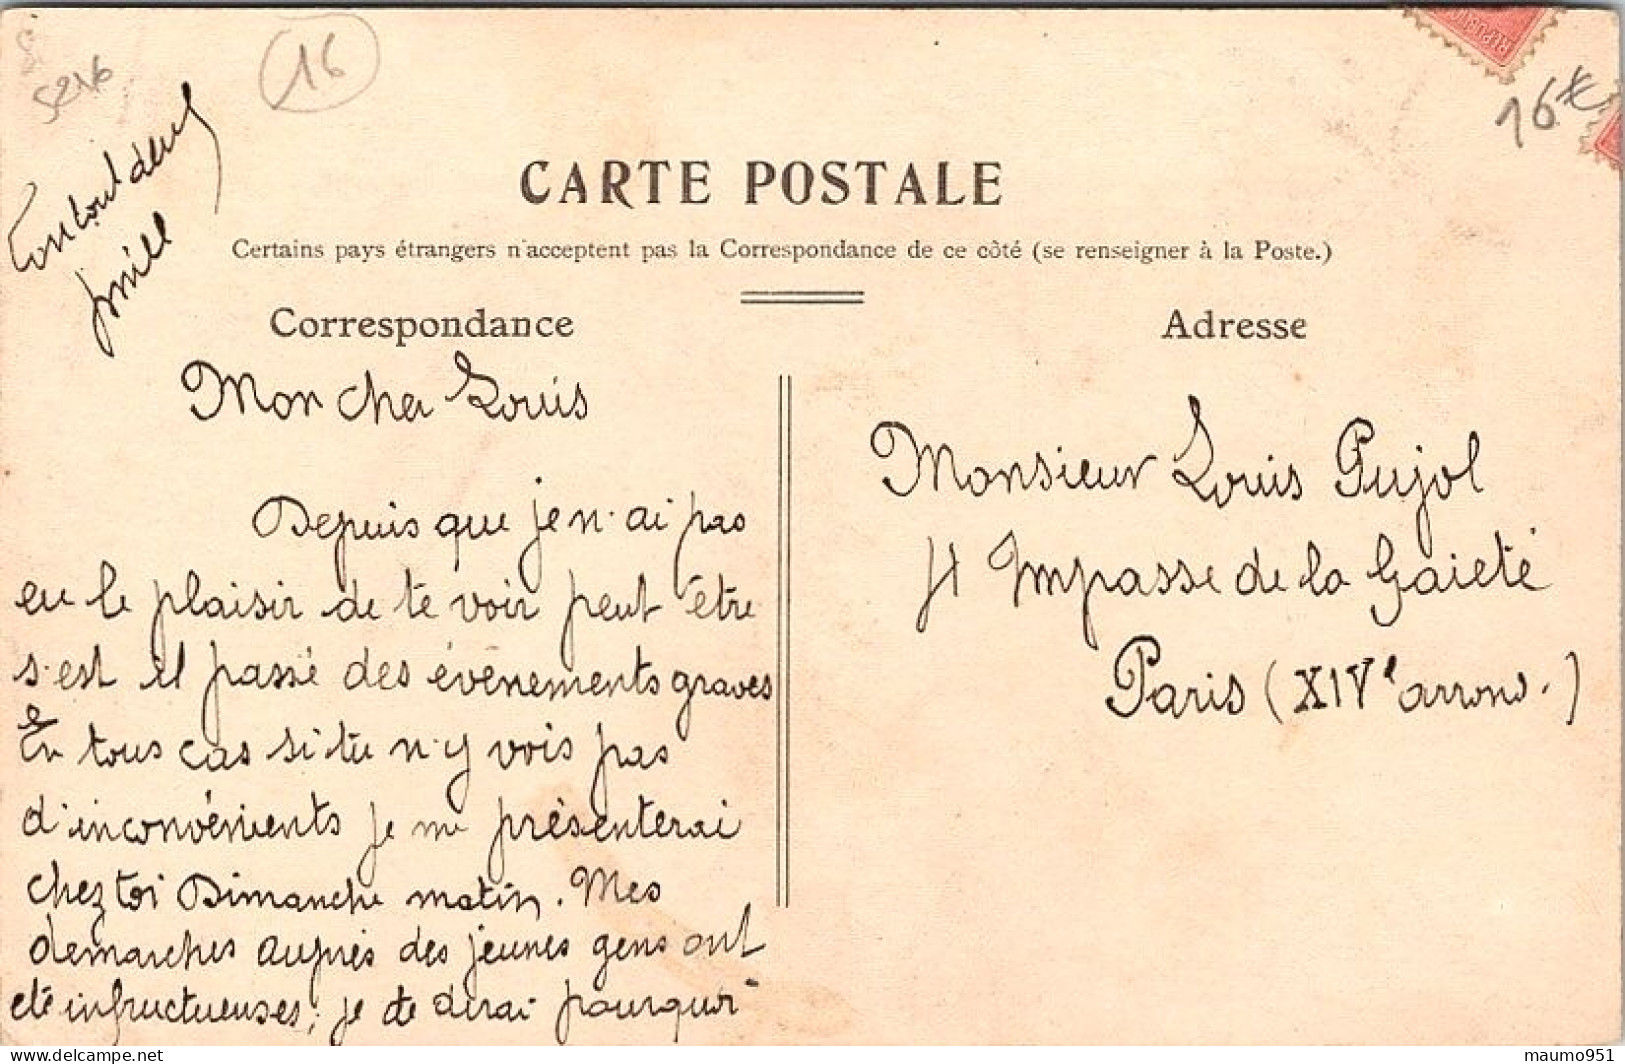 5216
16
16€
REPUBLIQ
CARTE POSTALE
Certains pays étrangers n'acceptent pas la Correspondance de ce côté (se renseigner à la Poste.)
Correspondance
Adresse
Mon cher Louis
Depuis que je n'ai pas
eu le plaisir de te voir peut être
s'est il passé des évènements graves
En tous cas si tu n'y vois pas
d'inconvénients je me présenterai
chez toi Dimanche matin. Mes
demarches auprès des jeunes gens ont
été infructueuses; je te dirai pourquoi
Monsieur Louis Pujol
Impasse de la Gaieté
Paris (XIVe arrond.)
maumo951